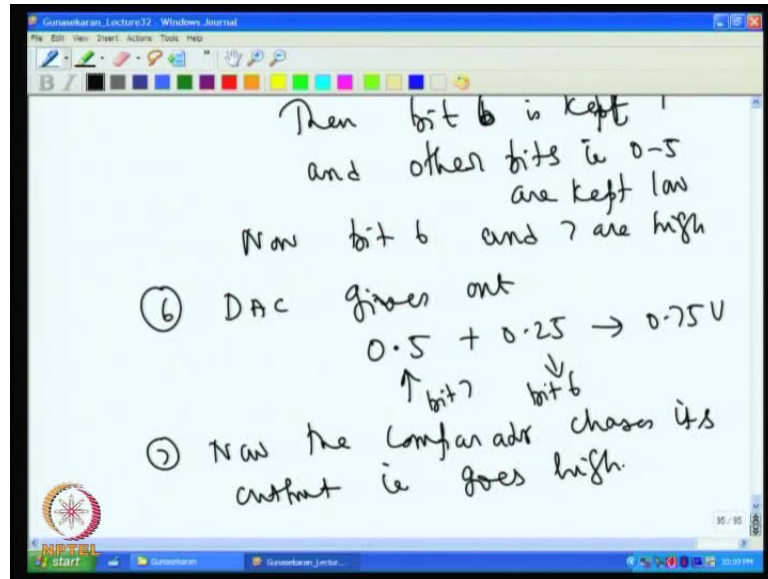 Gunasekaran_Lecture32 - Windows Journal
File Edit View Insert Actions Tools Help
B I
Then bit 6 is kept 1
and other bits ie 0-5
are kept low
Now bit 6 and 7 are high
6 DAC gives out
0.5 + 0.25 → 0.75 V
↑ bit 7 ↓ bit 6
7 Now the comparador chases its
output ie goes high.
95 / 95
NPTEL
start Gunasekaran Gunasekaran_Lectur... 10:39 PM